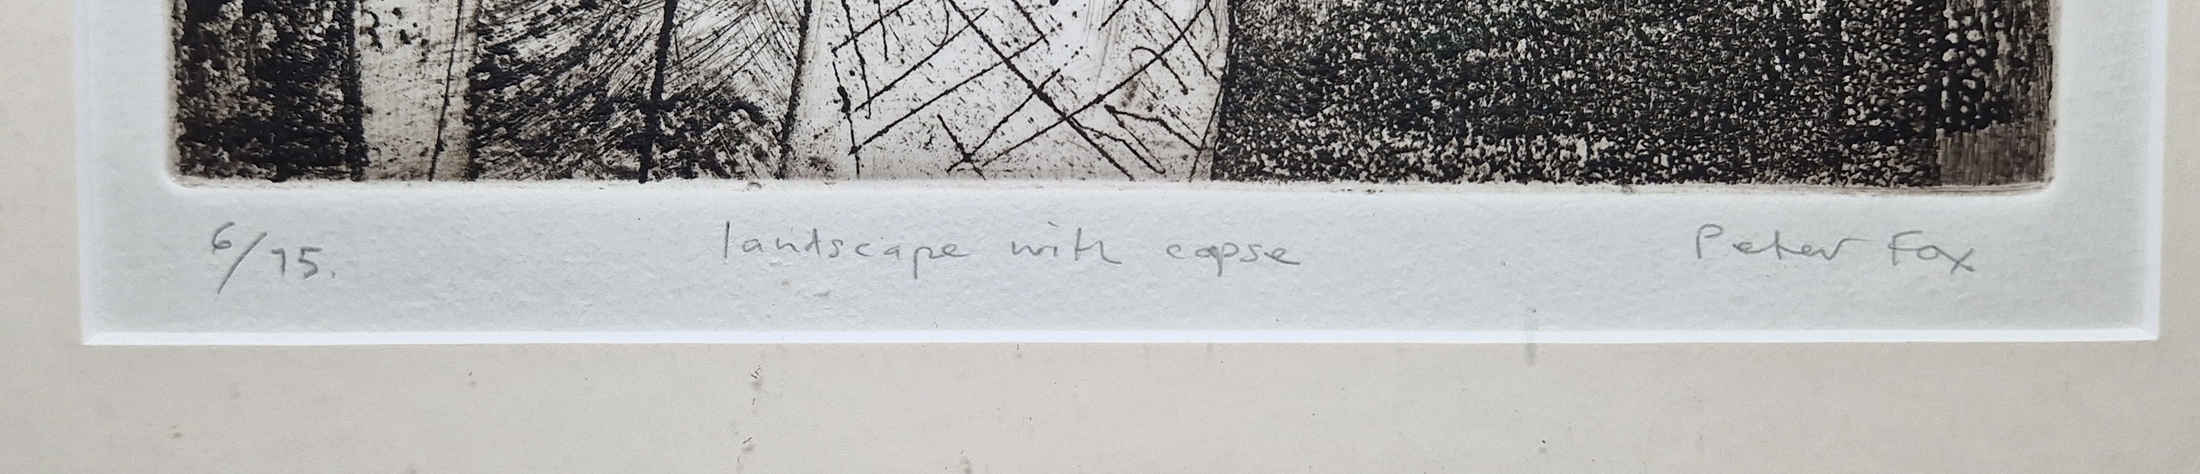 6/75. landscape with copse Peter Fox